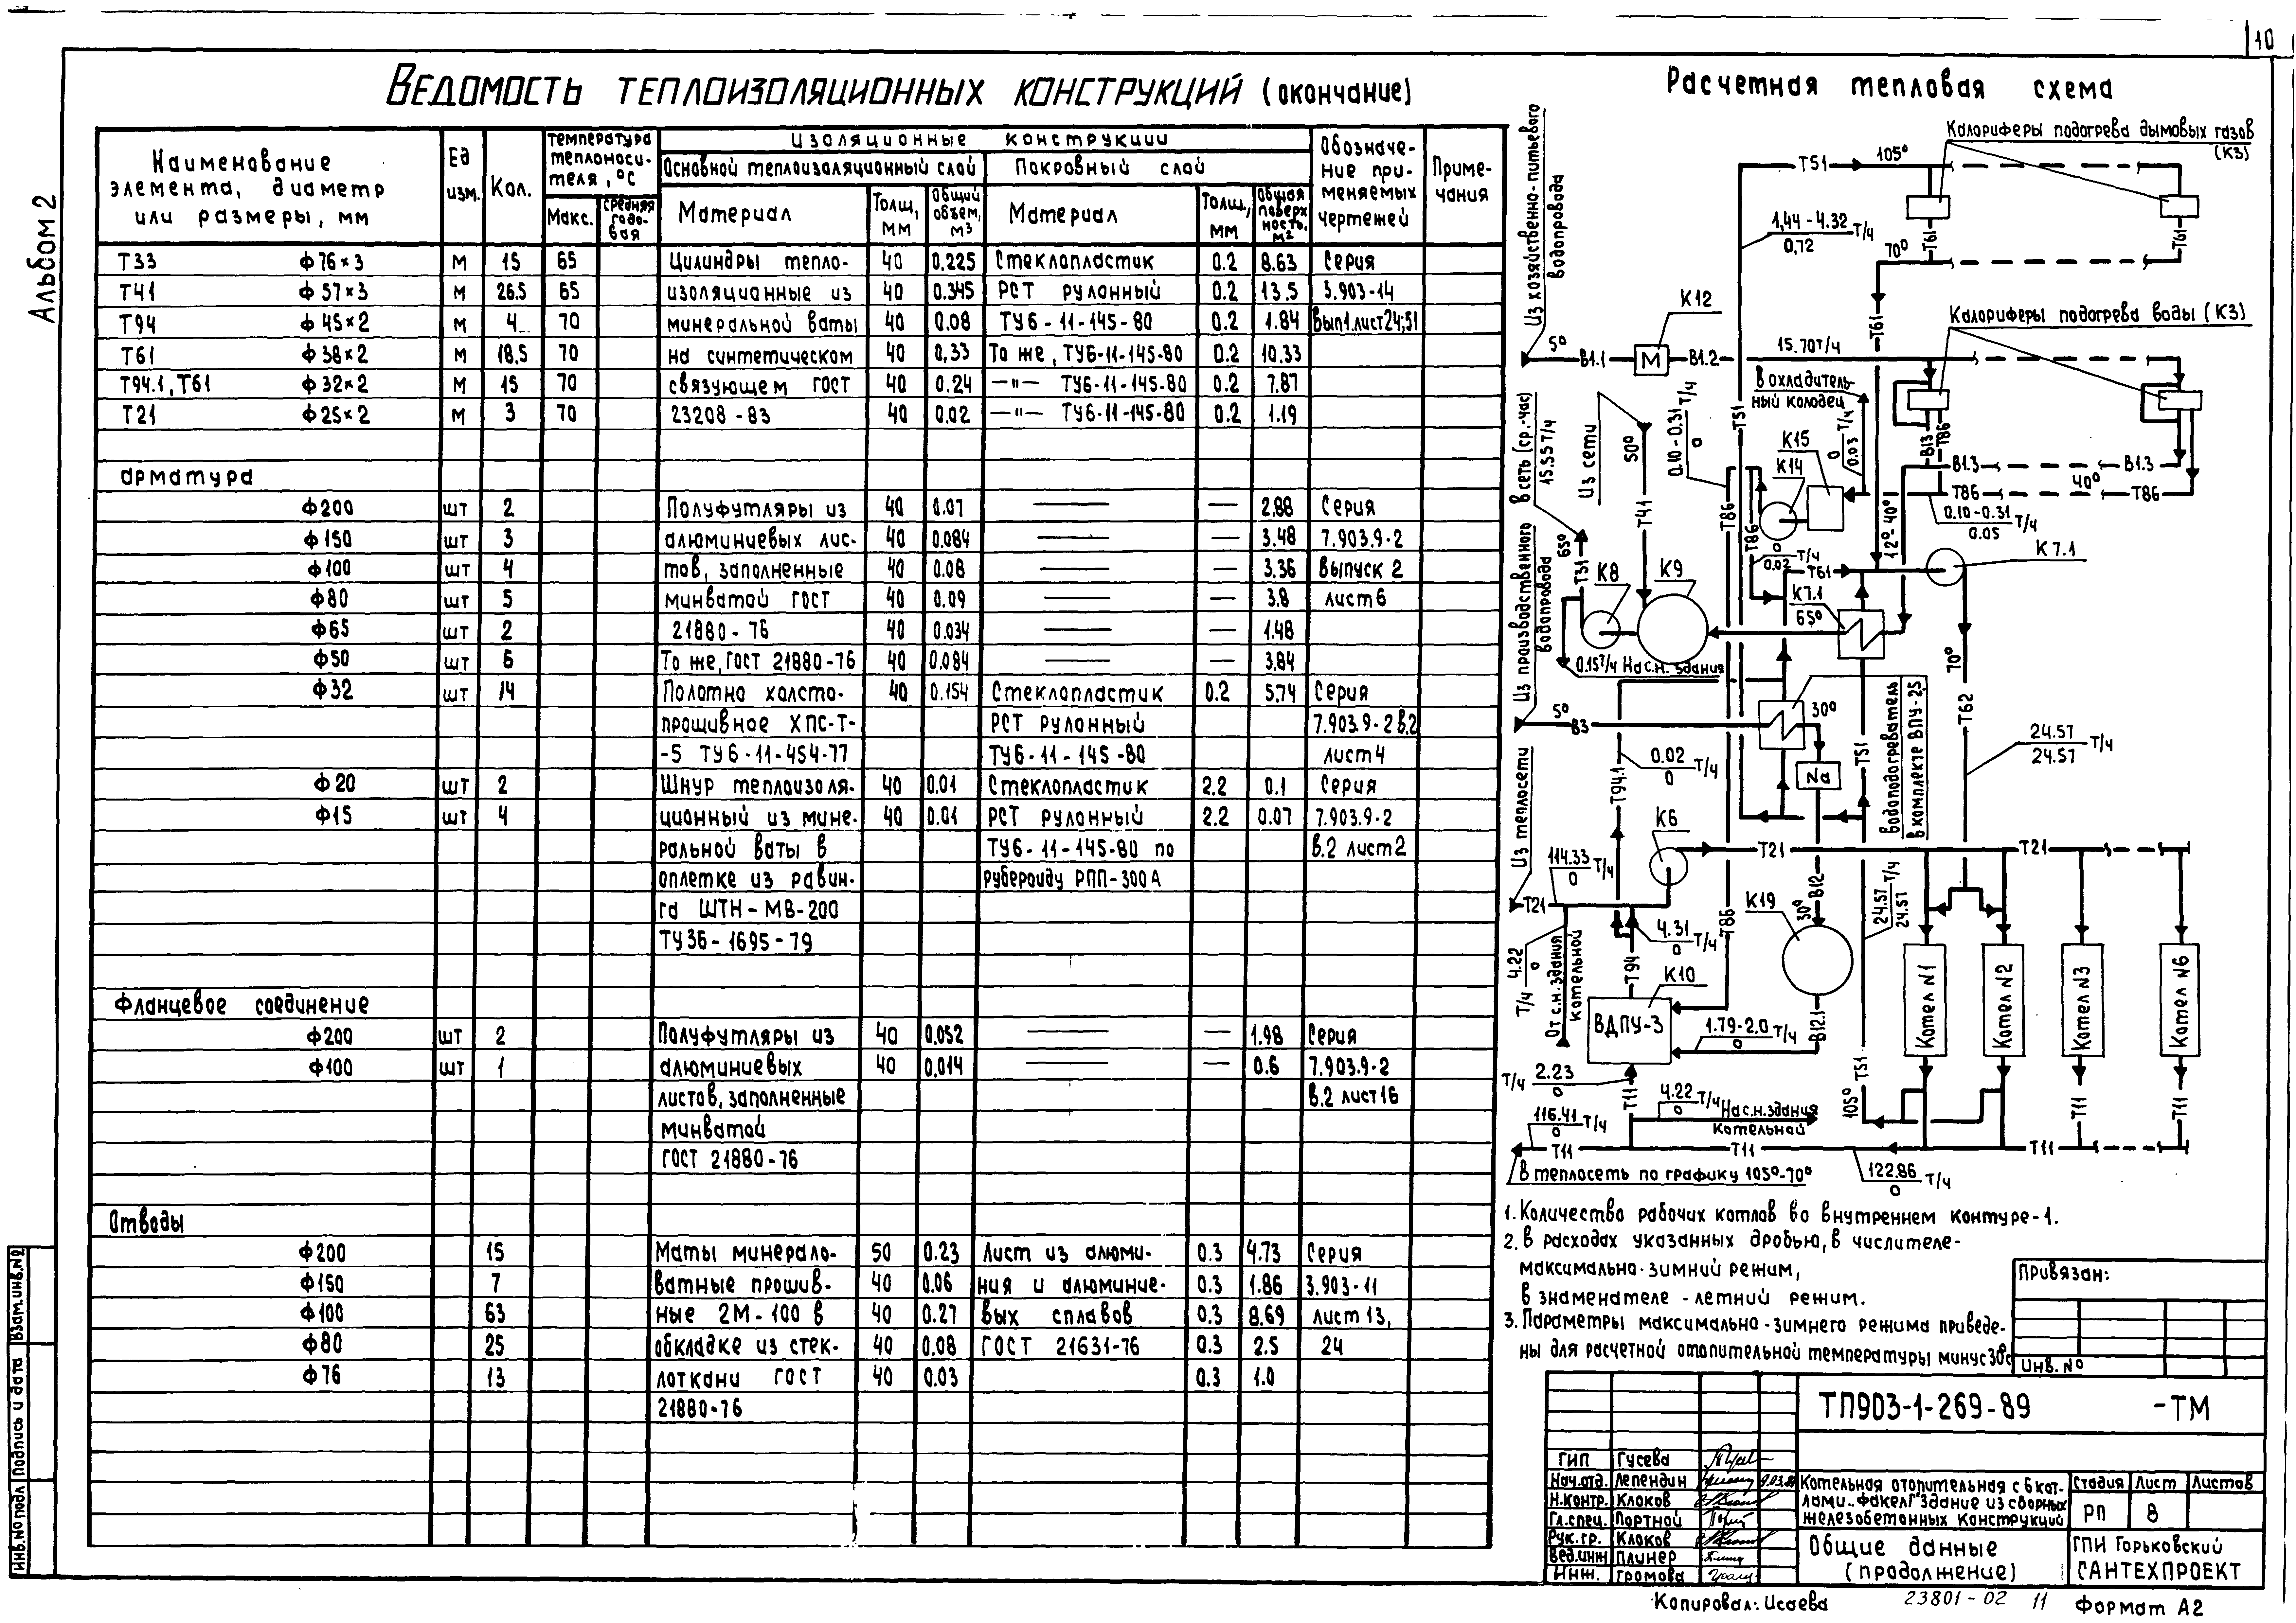 10
Альбом 2
Ведомость теплоизоляционных конструкций (окончание)
Наименование элемента, диаметр или размеры, мм
Ед изм.
Кол.
Температура теплоносителя, °С
Макс.
Средняя годовая
Изоляционные конструкции
Основной теплоизоляционный слой
Покровный слой
Материал
Толщ, мм
Общий объем, м3
Материал
Толщ., мм
Общая поверхность, м2
Обозначение применяемых чертежей
Примечания
Т33 ф76×3 м 15 65 Цилиндры тепло- 40 0.225 Стеклопластик 0.2 8.63 Серия
Т41 ф57×3 м 26.5 65 изоляцианные из 40 0.345 РСТ рулонный 0.2 13.5 3.903-14
Т94 ф45×2 м 4 70 минеральной ваты 40 0.08 ТУ6-11-145-80 0.2 1.84 вып1.лист24;51
Т61 ф38×2 м 18,5 70 на синтетическом 40 0,33 То же, ТУ6-11-145-80 0.2 10.33
Т94.1, Т61 ф32×2 м 15 70 связующем ГОСТ 40 0.24 —"— ТУ6-11-145-80 0.2 7.87
Т21 ф25×2 м 3 70 23208-83 40 0.02 —"— ТУ6-11-145-80 0.2 1.19
арматура
ф200 шт 2 Полуфутляры из 40 0.07 — — 2.88 Серия
ф150 шт 3 алюминиевых лис- 40 0.084 — — 3.48 7.903.9-2
ф100 шт 4 тов, заполненные 40 0.08 — — 3.36 выпуск 2
ф80 шт 5 минватой ГОСТ 40 0.09 — — 3.8 лист6
ф65 шт 2 21880-76 40 0.034 — — 1.48
ф50 шт 6 То же, ГОСТ 21880-76 40 0.084 — — 3.84
ф32 шт 14 Полотно холсто- 40 0.154 Стеклопластик 0.2 5.74 Серия
прошивное ХПС-Т- РСТ рулонный 7.903.9-2 в.2
-5 ТУ6-11-454-77 ТУ6-11-145-80 лист4
ф20 шт 2 Шнур теплоизоля- 40 0.01 Стеклопластик 2.2 0.1 Серия
ф15 шт 4 ционный из мине- 40 0.01 РСТ рулонный 2.2 0.07 7.903.9-2
ральной ваты в ТУ6-11-145-80 по в.2 лист2
оплетке из равин- рубероиду РПП-300А
га ШТН-МВ-200
ТУ36-1695-79
Фланцевое соединение
ф200 шт 2 Полуфутляры из 40 0,052 — — 1.98 Серия
ф100 шт 1 алюминиевых 40 0,014 — — 0.6 7.903.9-2
листов, заполненные в.2 лист16
минватой
ГОСТ 21880-76
Отводы
ф200 15 Маты минерало- 50 0.23 Лист из алюми- 0.3 4.73 Серия
ф150 7 ватные прошив- 40 0.06 ния и алюминие- 0.3 1.86 3.903-11
ф100 63 ные 2М-100 в 40 0.27 вых сплавов 0.3 8.69 лист13,
ф80 25 обкладке из стек- 40 0.08 ГОСТ 21631-76 0.3 2.5 24
ф76 13 лоткани ГОСТ 40 0.03 0.3 1.0
21880-76
Расчетная тепловая схема
Калориферы подогрева дымовых газов (К3)
Т51 105°
Т61
Т61
70°
1,44-4.32 / 0,72 т/ч
Из хозяйственно-питьевого водопровода
Т61
К12
Калориферы подогрева воды (К3)
5° В1.1 М В1.2 15.70т/ч
в охладительный колодец
в сеть (ср.-час) 15.55т/ч
Из сети
50°
0.10-0.31 / 0 т/ч
Т51
0 / 0.03 т/ч
К15
К14
В1.3
Т86
В1.3 В1.3
40°
Т86 Т86
0.10-0.31 / 0.05 т/ч
Т41
Т86
Т86
12°-40°
0 / 0.02 т/ч
Т61
К7.1
65°
Т31
К8
К9
К7.1
65°
0.15т/ч На с.н. здания
Из производственного водопровода
70°
5° В3
30°
водоподогреватель в комплекте ВПУ-2,5
Т62
24.57 / 24.57 т/ч
Na
Т51
Т94.1
0.02 / 0 т/ч
Из теплосети
К6
Т21 Т21
114.33 / 0 т/ч
Т21
Т86
К19
30° В12
24.57 / 24.57 т/ч
4.31 / 0 т/ч
т/ч 4.22 / 0
От с.н. здания котельной
Т94
К10
ВДПУ-3
1.79-2.0 / 0 т/ч
В12.1
Котел N1
Котел N2
Котел N3
Котел N6
т/ч 2.23 / 0
Т11
4.22 / 0 т/ч
На с.н. здания котельной
105° Т51
Т11
Т11
116.41 / 0 т/ч
Т11 Т11 Т11
в теплосеть по графику 105°-70°
122.86 / 0 т/ч
1. Количество рабочих котлов во внутреннем контуре-1.
2. в расходах указанных дробью, в числителе-
максимально-зимний режим,
в знаменателе - летний режим.
3. Параметры максимально-зимнего режима приведе-
ны для расчетной отопительной температуры минус 30°
Привязан:
Инв. №
ТП903-1-269-89 -ТМ
ГИП Гусева
Нач.отд. Лепендин
Н.контр. Клоков
Гл.спец. Портной
Рук.гр. Клоков
Вед.инж Плинер
Инж. Громова
Котельная отопительная с 6 кот-
лами „Факел" Здание из сборных
железобетонных конструкций
Стадия Лист Листов
РП 8
Общие данные
(продолжение)
ГПИ Горьковский
САНТЕХПРОЕКТ
Копировал: Исаева
23801-02 11
Формат А2
Инв.№ подл Подпись и дата Взам.инв.№